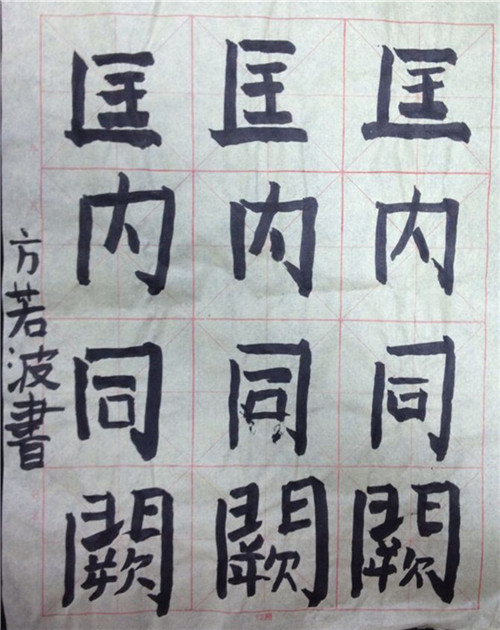 匡匡匡
内内内
同同同
阙阙阙
方若波書